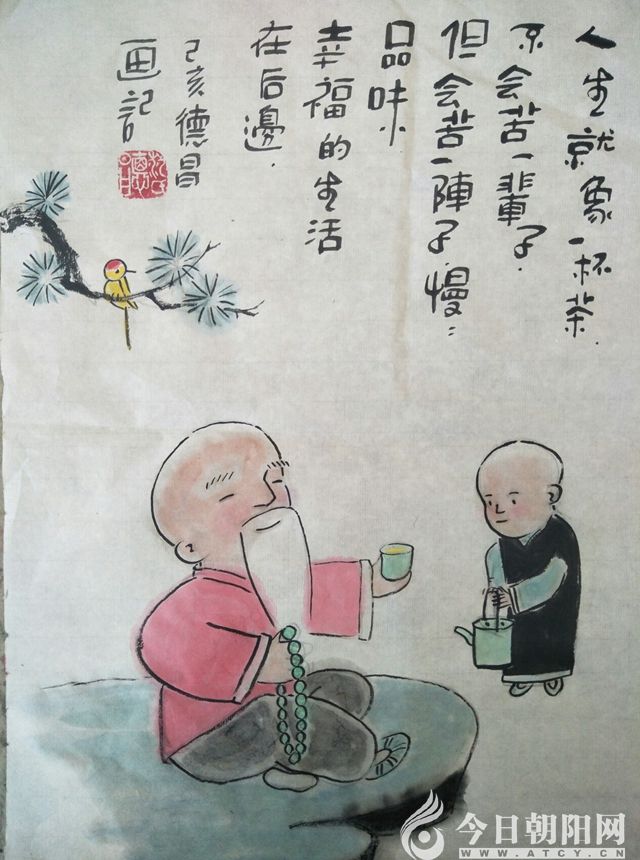 人生就象一杯茶.
不会苦一辈子.
但会苦一陣子.慢:
品味.
幸福的生活
在后邊.
己亥德昌
画記
今日朝阳网
WWW.ATCY.CN